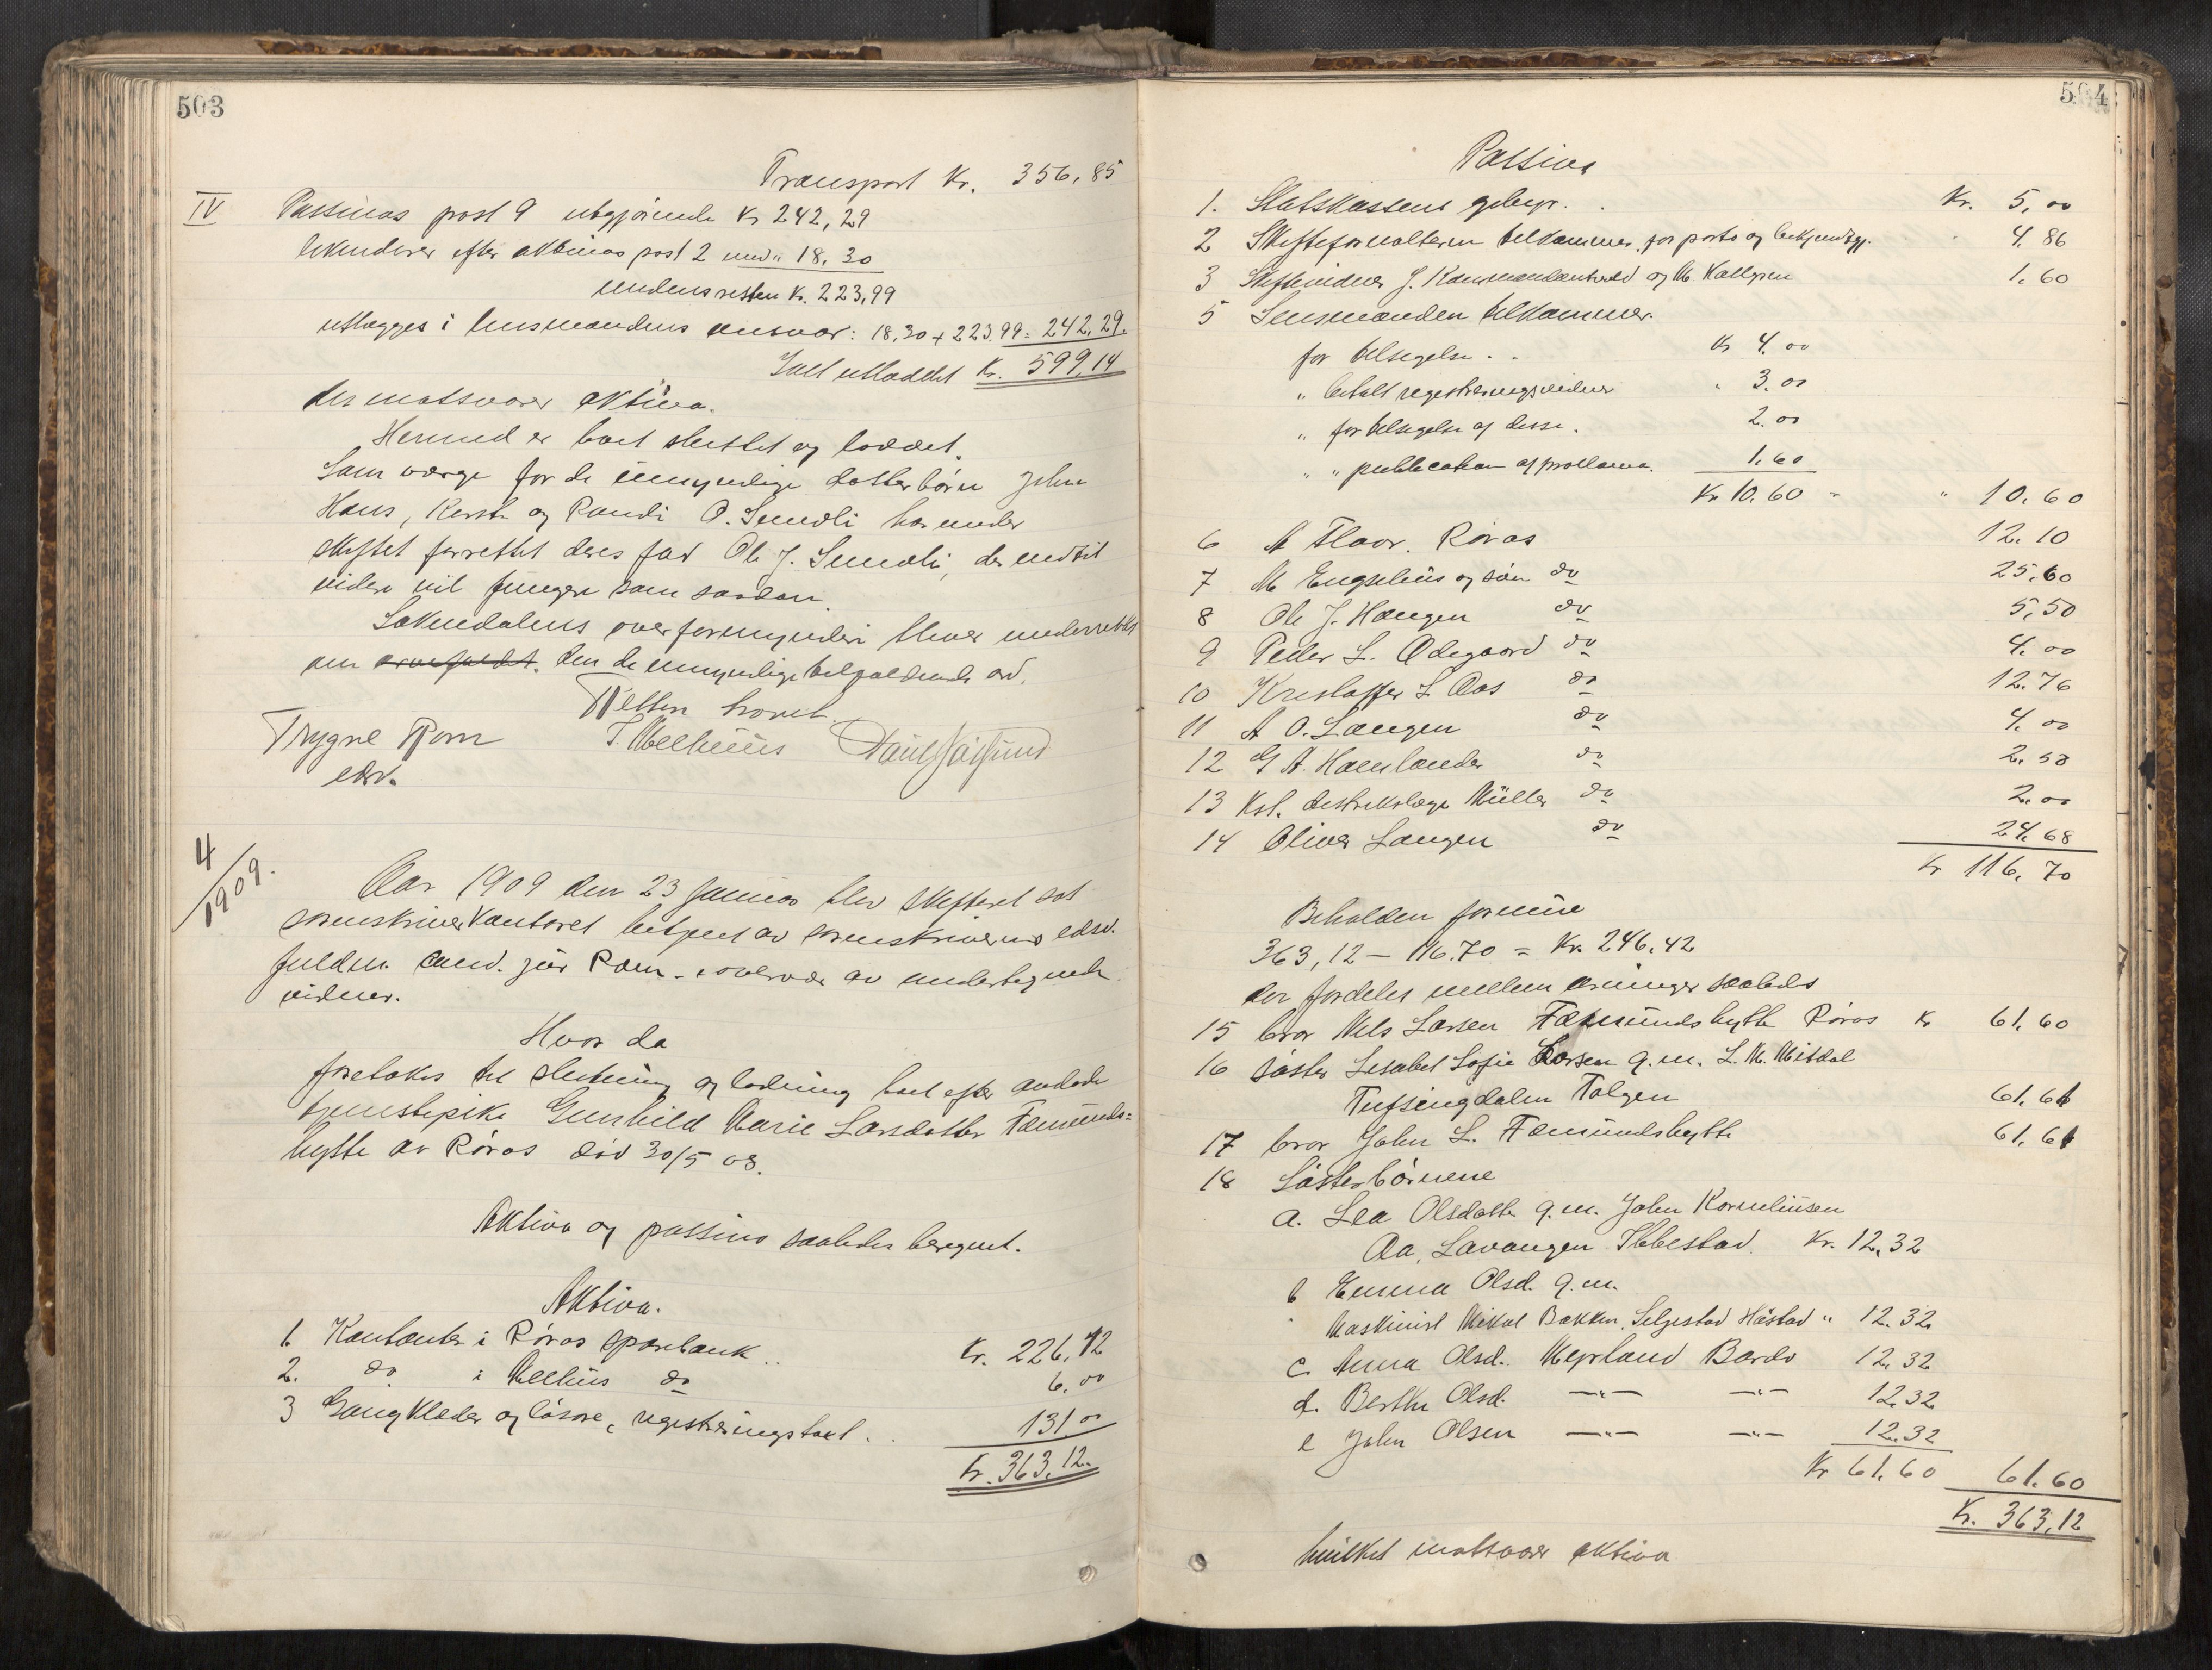 503
Transport Kr. 356,85
IV Passivas post 9 utgjørende Kr 242,29
likviderer efter aktivas post 2 med " 18.30
mens resten Kr. 223,99
utlægges i lensmandens ansvar: 18,30 + 223.99 = 242.29.
Ialt utloddet Kr. 599,14
der motsvarer aktiva.
Hermed er boet sluttet og loddet.
Som værge for de umyndige datterbørn John
Hans, Kerst og Randi O. Sundli har under
skiftet forrettet deres far Ole J. Sundli, der indtil
videre vil fungere som saadan.
Soknedalens overformynderi bliver underrettet
om den de umyndige tilfaldende arv.
Retten hævet.
Trygve Rom J. Melhuus Paul
edsv.
4/1909.
Aar 1909 den 23 januar blev skifteret sat
sorenskriverkontoret betjent av sorenskriverens edsv.
fuldm. cand. jur Rom - i overvær av undertegnede
vidner.
Hvor da
foretokes til slutning og lodning boet efter avdøde
tjenestepike Gunhild Marie Larsdatter Fæmunds=
hytte av Røros død 30/5 08.
Aktiva og passiva saaledes beregnet.
Aktiva.
1. Kontanter i Røros sparebank .. Kr. 226,12
2. do i Melhus do 6,00
3 Gangklæder og løsøre, registreringstakt . . 131.00
Kr. 363,12.
504
Passiva
1. Statskassens gebyr. . Kr. 5,00
2 Skifteforvalteren tilkommer for porto og bekjendtgj. 4.86
3 Skiftevidner J. og M. Hallgren 1.60
5 Lensmanden tilkommer.
for bilsigelse . . Kr 4.00
" betalt registreringsvidner " 3.00
" for tilsigelse af disse. 2.00
" " publication af proklama. 1.60
Kr 10.60 = " 10.60
6 A Floor. Røros 12.10
7 M Engzelius og søn do 25.60
8 Ole J. Haugen do 5,50
9 Peder L. Ødegaard do 4.00
10 Kristoffer L Aas do 12.76
11 A O. Langen do 4.00
12 G A. Hamlander do 2.50
13 Kst. distriktslæge Müller do 2.00
14 Oliver Langen do 24.68
Kr 116,70
Beholden formue
363,12 — 116.70 = Kr. 246.42
der fordeles mellem arvinger saaleds
15 bror Nils Larsen Fæmundshytte Røros Kr 61.60
16 søster Lisabet Sofie Larsen g.m. L. M. Midtdal
Tufsingdalen Tolgen 61.61
17 bror John L. Fæmundshytte 61.61
18 Søsterbørnene
a. Lea Olsdatter g.m. John Korneliusen
Aa, Lavangen Ibbestad. Kr. 12,32
b Emma Olsd. g.m.
Maskinist Mikal Bakken, Selgestad Hastad " 12.32
c. Anna Olsd. Meprland Bardo 12.32
d. Berthe Olsd. —"— —"— 12.32
e John Olsen —"— —"— 12.32
Kr 61.60 61.60
Kr. 363,12
hvilket motsvarer aktiva